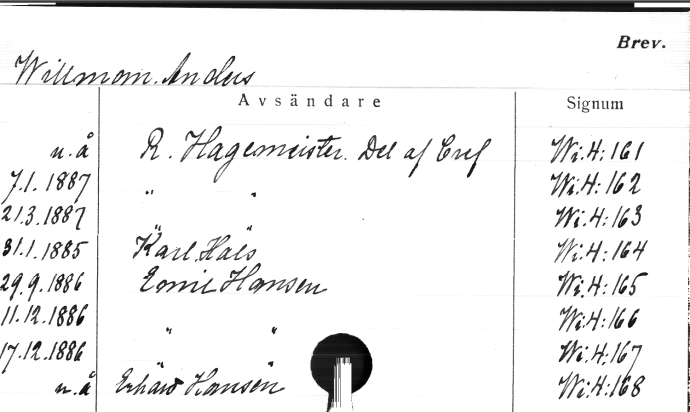 Brev.
Willmom. Anders
Avsändare Signum
u.å R. Hagemeister. Del af Bref Wi:4:161
7.1.1887 " " Wi:4:162
21.3.1887 " " Wi:4:163
31.1.1885 Karl Hals Wi:4:164
29.9.1886 Emil Hansen Wi:4:165
11.12.1886 Wi:4:166
17.12.1886 " " Wi:4:167
u.å Hansen Wi:4:168